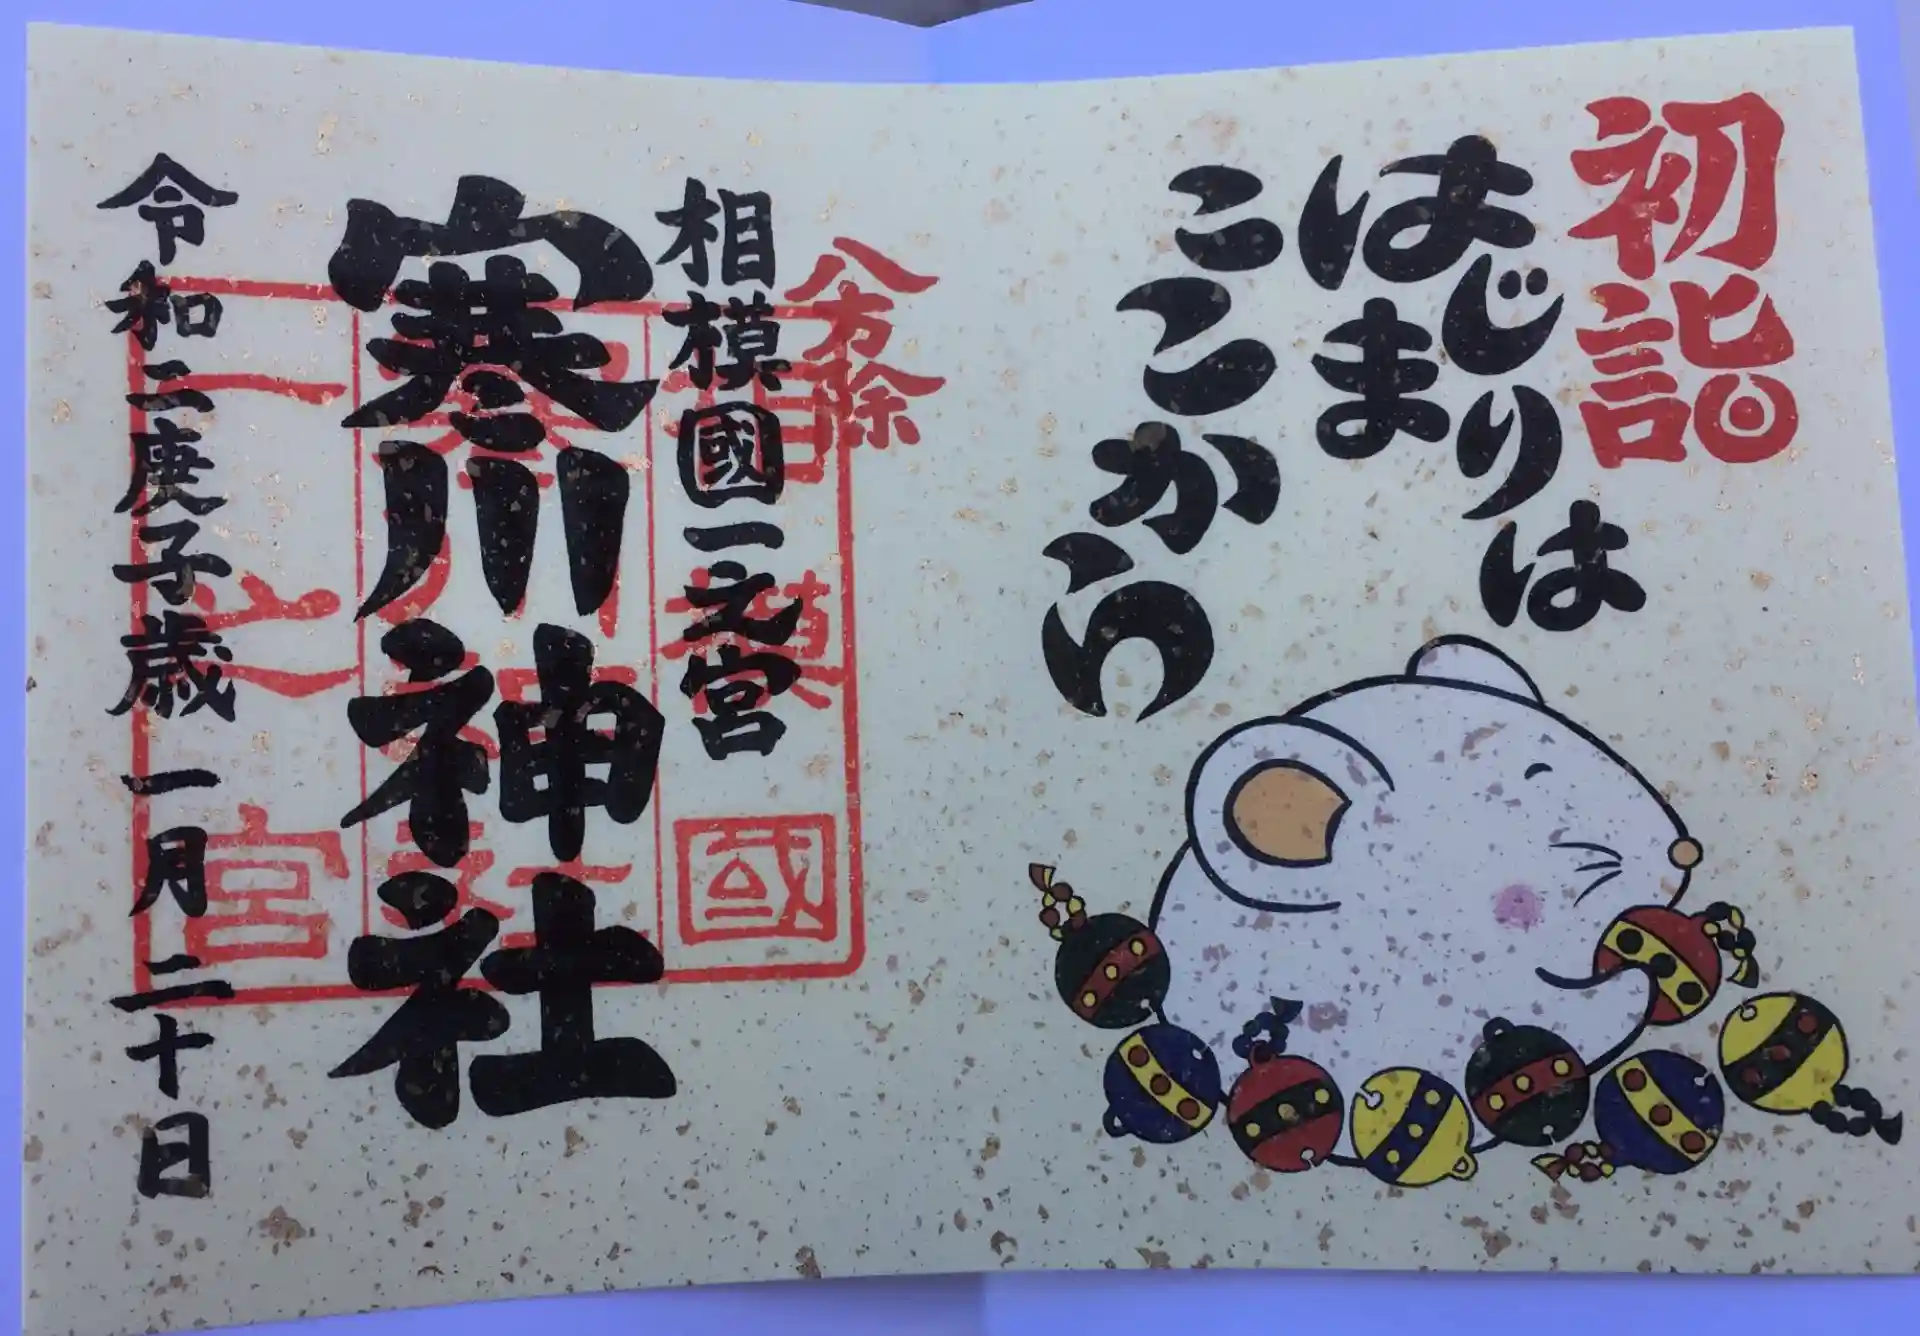 初詣
はじまりは
はま
ここから
八方除
相模國一之宮
寒川神社
令和二庚子歳 一月二十日
相模國
寒川神社
一之宮